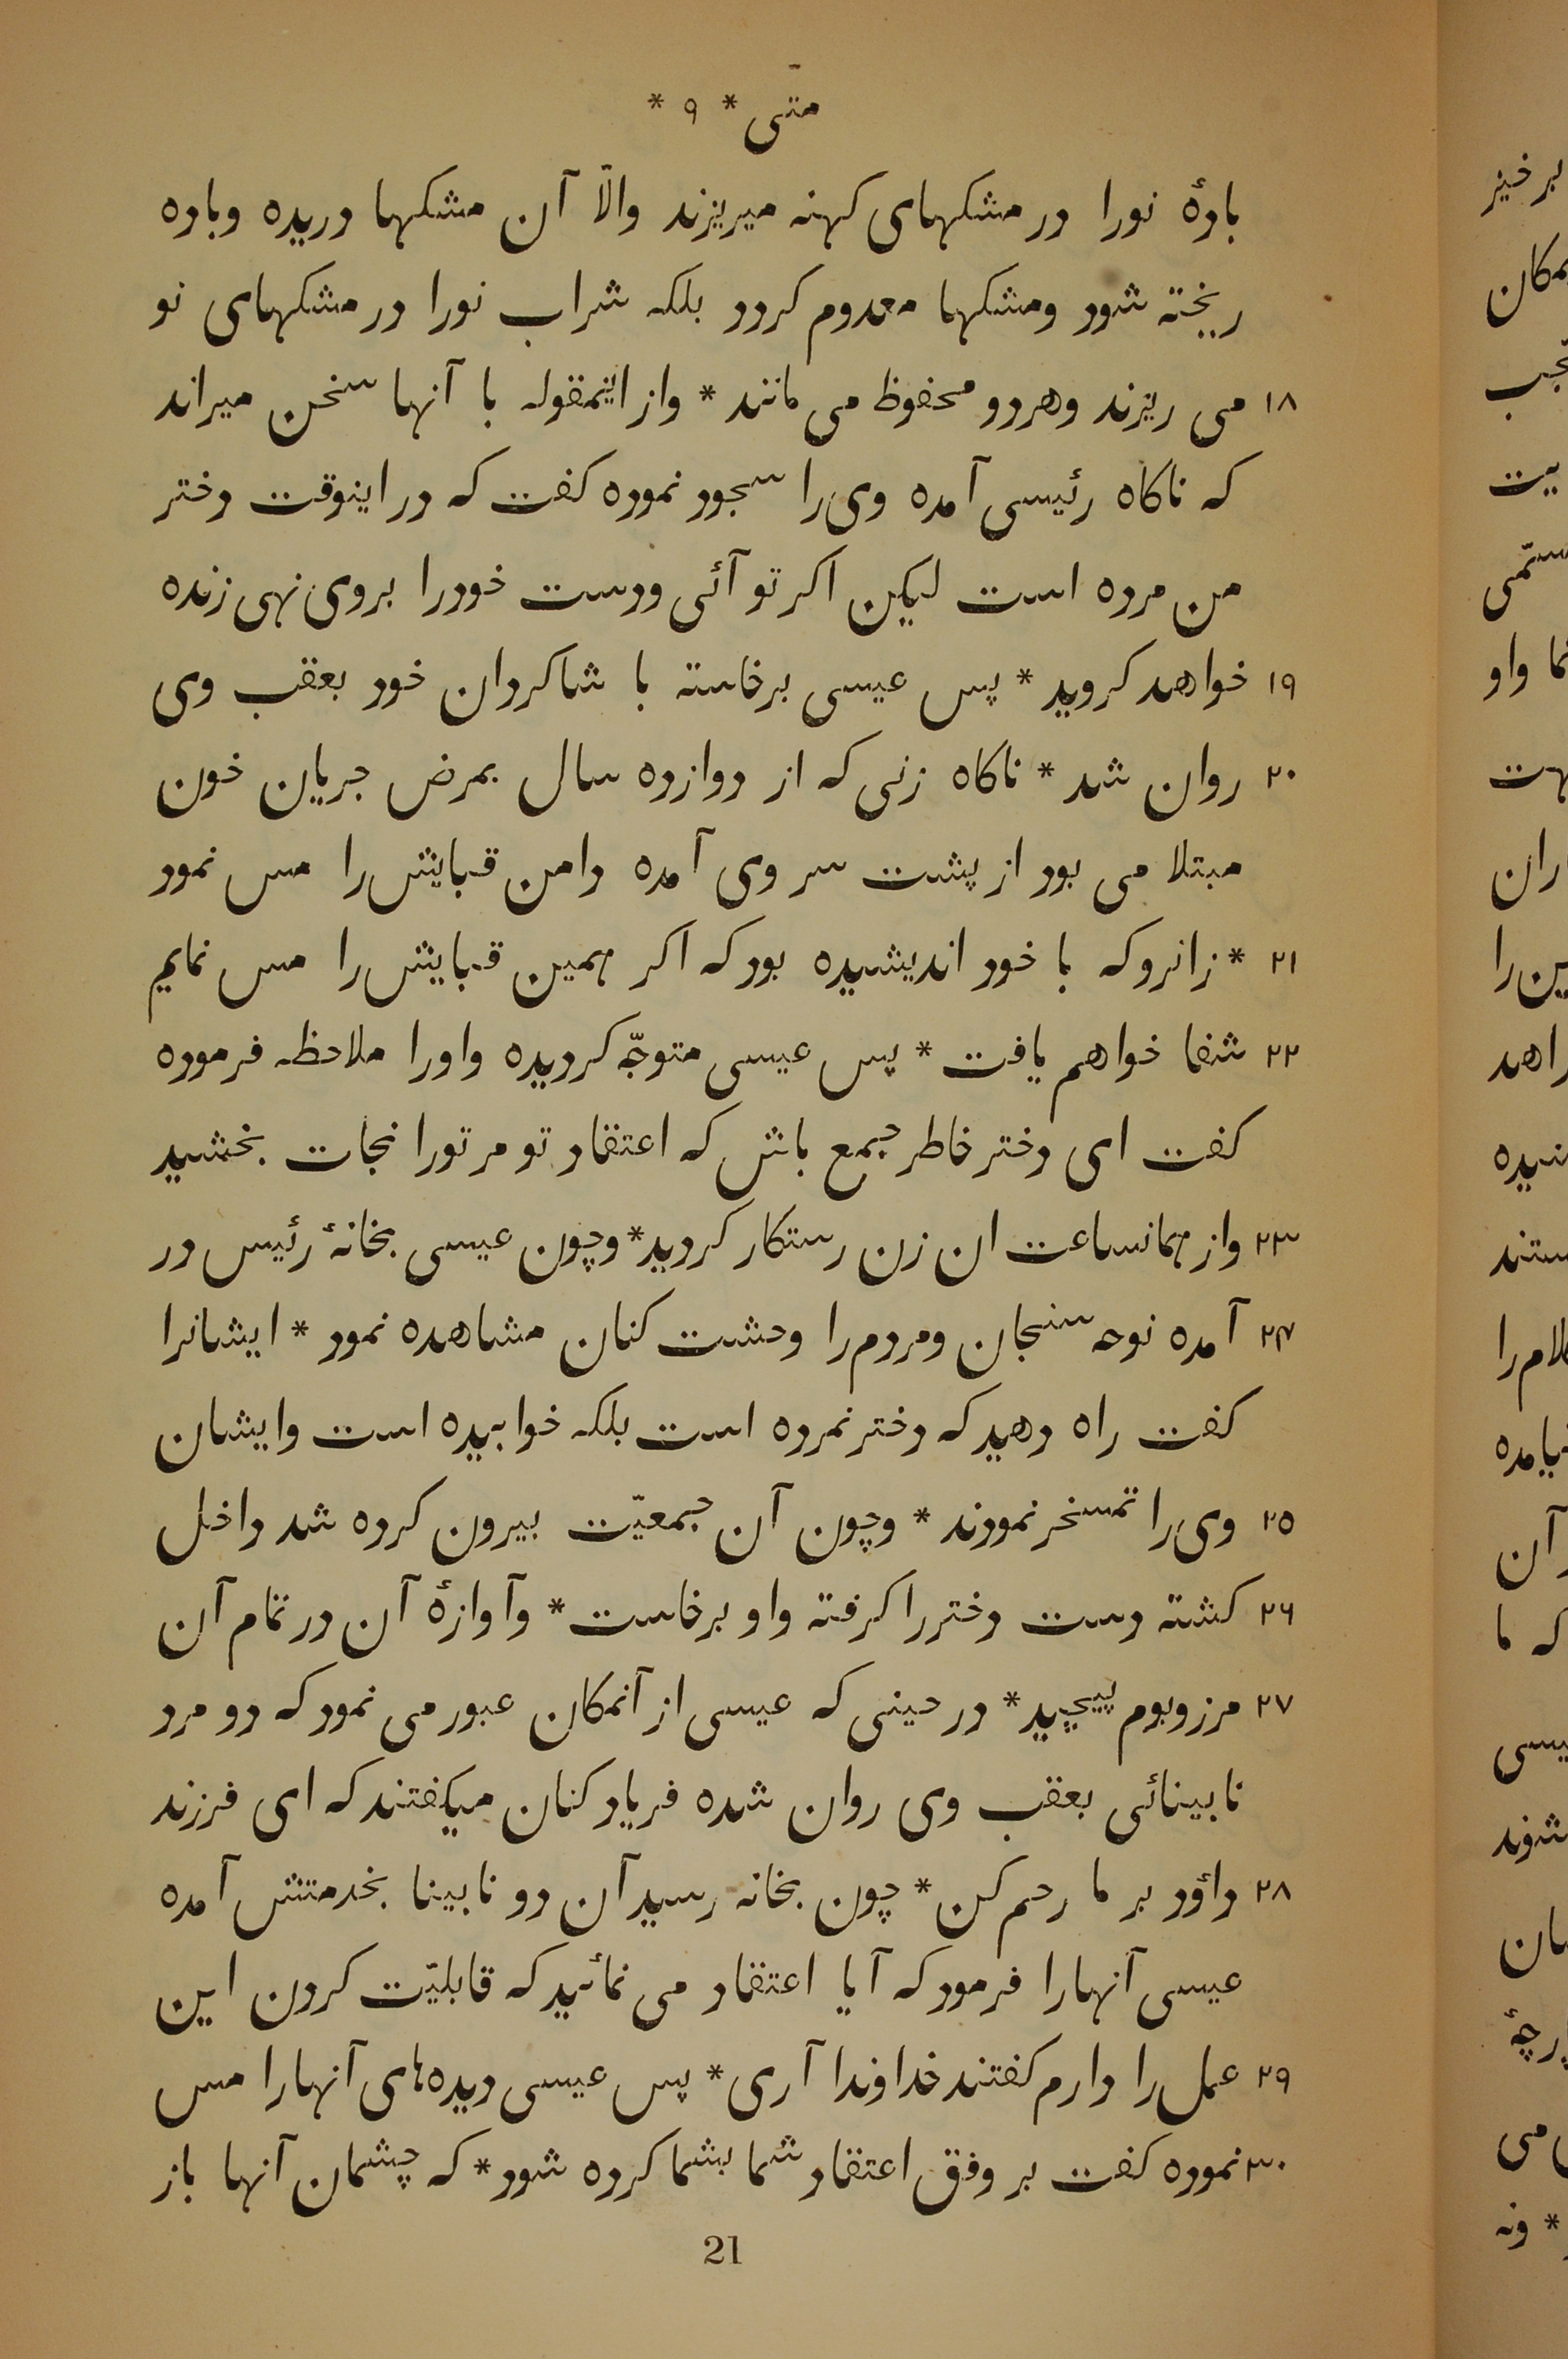 متی * ۹ *
بادهٔ نورا در مشکهای کهنه میریزند والّا آن مشکها دریده وباده
ریخته شود ومشکها معدوم کردد بلکه شراب نورا در مشکهای نو
۱۸ می ریزند وهردو محفوظ می مانند * واز اینمقوله با آنها سخن میراند
که ناکاه رئیسی آمده وی را سجود نموده کفت که در اینوقت دختر
من مرده است لیکن اکر تو آئی ودست خودرا بروی نهی زنده
۱۹ خواهد کروید * پس عیسی برخاسته با شاکردان خود بعقب وی
۲۰ روان شد * ناکاه زنی که از دوازده سال بمرض جریان خون
مبتلا می بود از پشت سر وی آمده دامن قبایش را مس نمود
۲۱ * زانرو که با خود اندیشیده بود که اکر همین قبایش را مس نمایم
۲۲ شفا خواهم یافت * پس عیسی متوجّه کردیده واورا ملاحظه فرموده
کفت ای دختر خاطر جمع باش که اعتقاد تو مر تورا نجات بخشید
۲۳ واز همانساعت ان زن رستکار کردید * وچون عیسی بخانهٔ رئیس در
۲۴ آمده نوحه سنجان ومردم را وحشت کنان مشاهده نمود * ایشانرا
کفت راه دهید که دختر نمرده است بلکه خوابیده است وایشان
۲۵ وی را تمسخر نمودند * وچون آن جمعیّت بیرون کرده شد داخل
۲۶ کشته دست دختر را کرفته واو برخاست * وآوازهٔ آن در تمام آن
۲۷ مرز وبوم پیچید * در حینی که عیسی از آنمکان عبور می نمود که دو مرد
نابینائی بعقب وی روان شده فریاد کنان میکفتند که ای فرزند
۲۸ داؤد بر ما رحم کن * چون بخانه رسید آن دو نابینا بخدمتش آمده
عیسی آنهارا فرمود که آیا اعتقاد می نمائید که قابلیّت کردن این
۲۹ عمل را دارم کفتند خداوندا آری * پس عیسی دیده‌های آنهارا مس
۳۰ نموده کفت بر وفق اعتقاد شما بشما کرده شود * که چشمان آنها باز
21